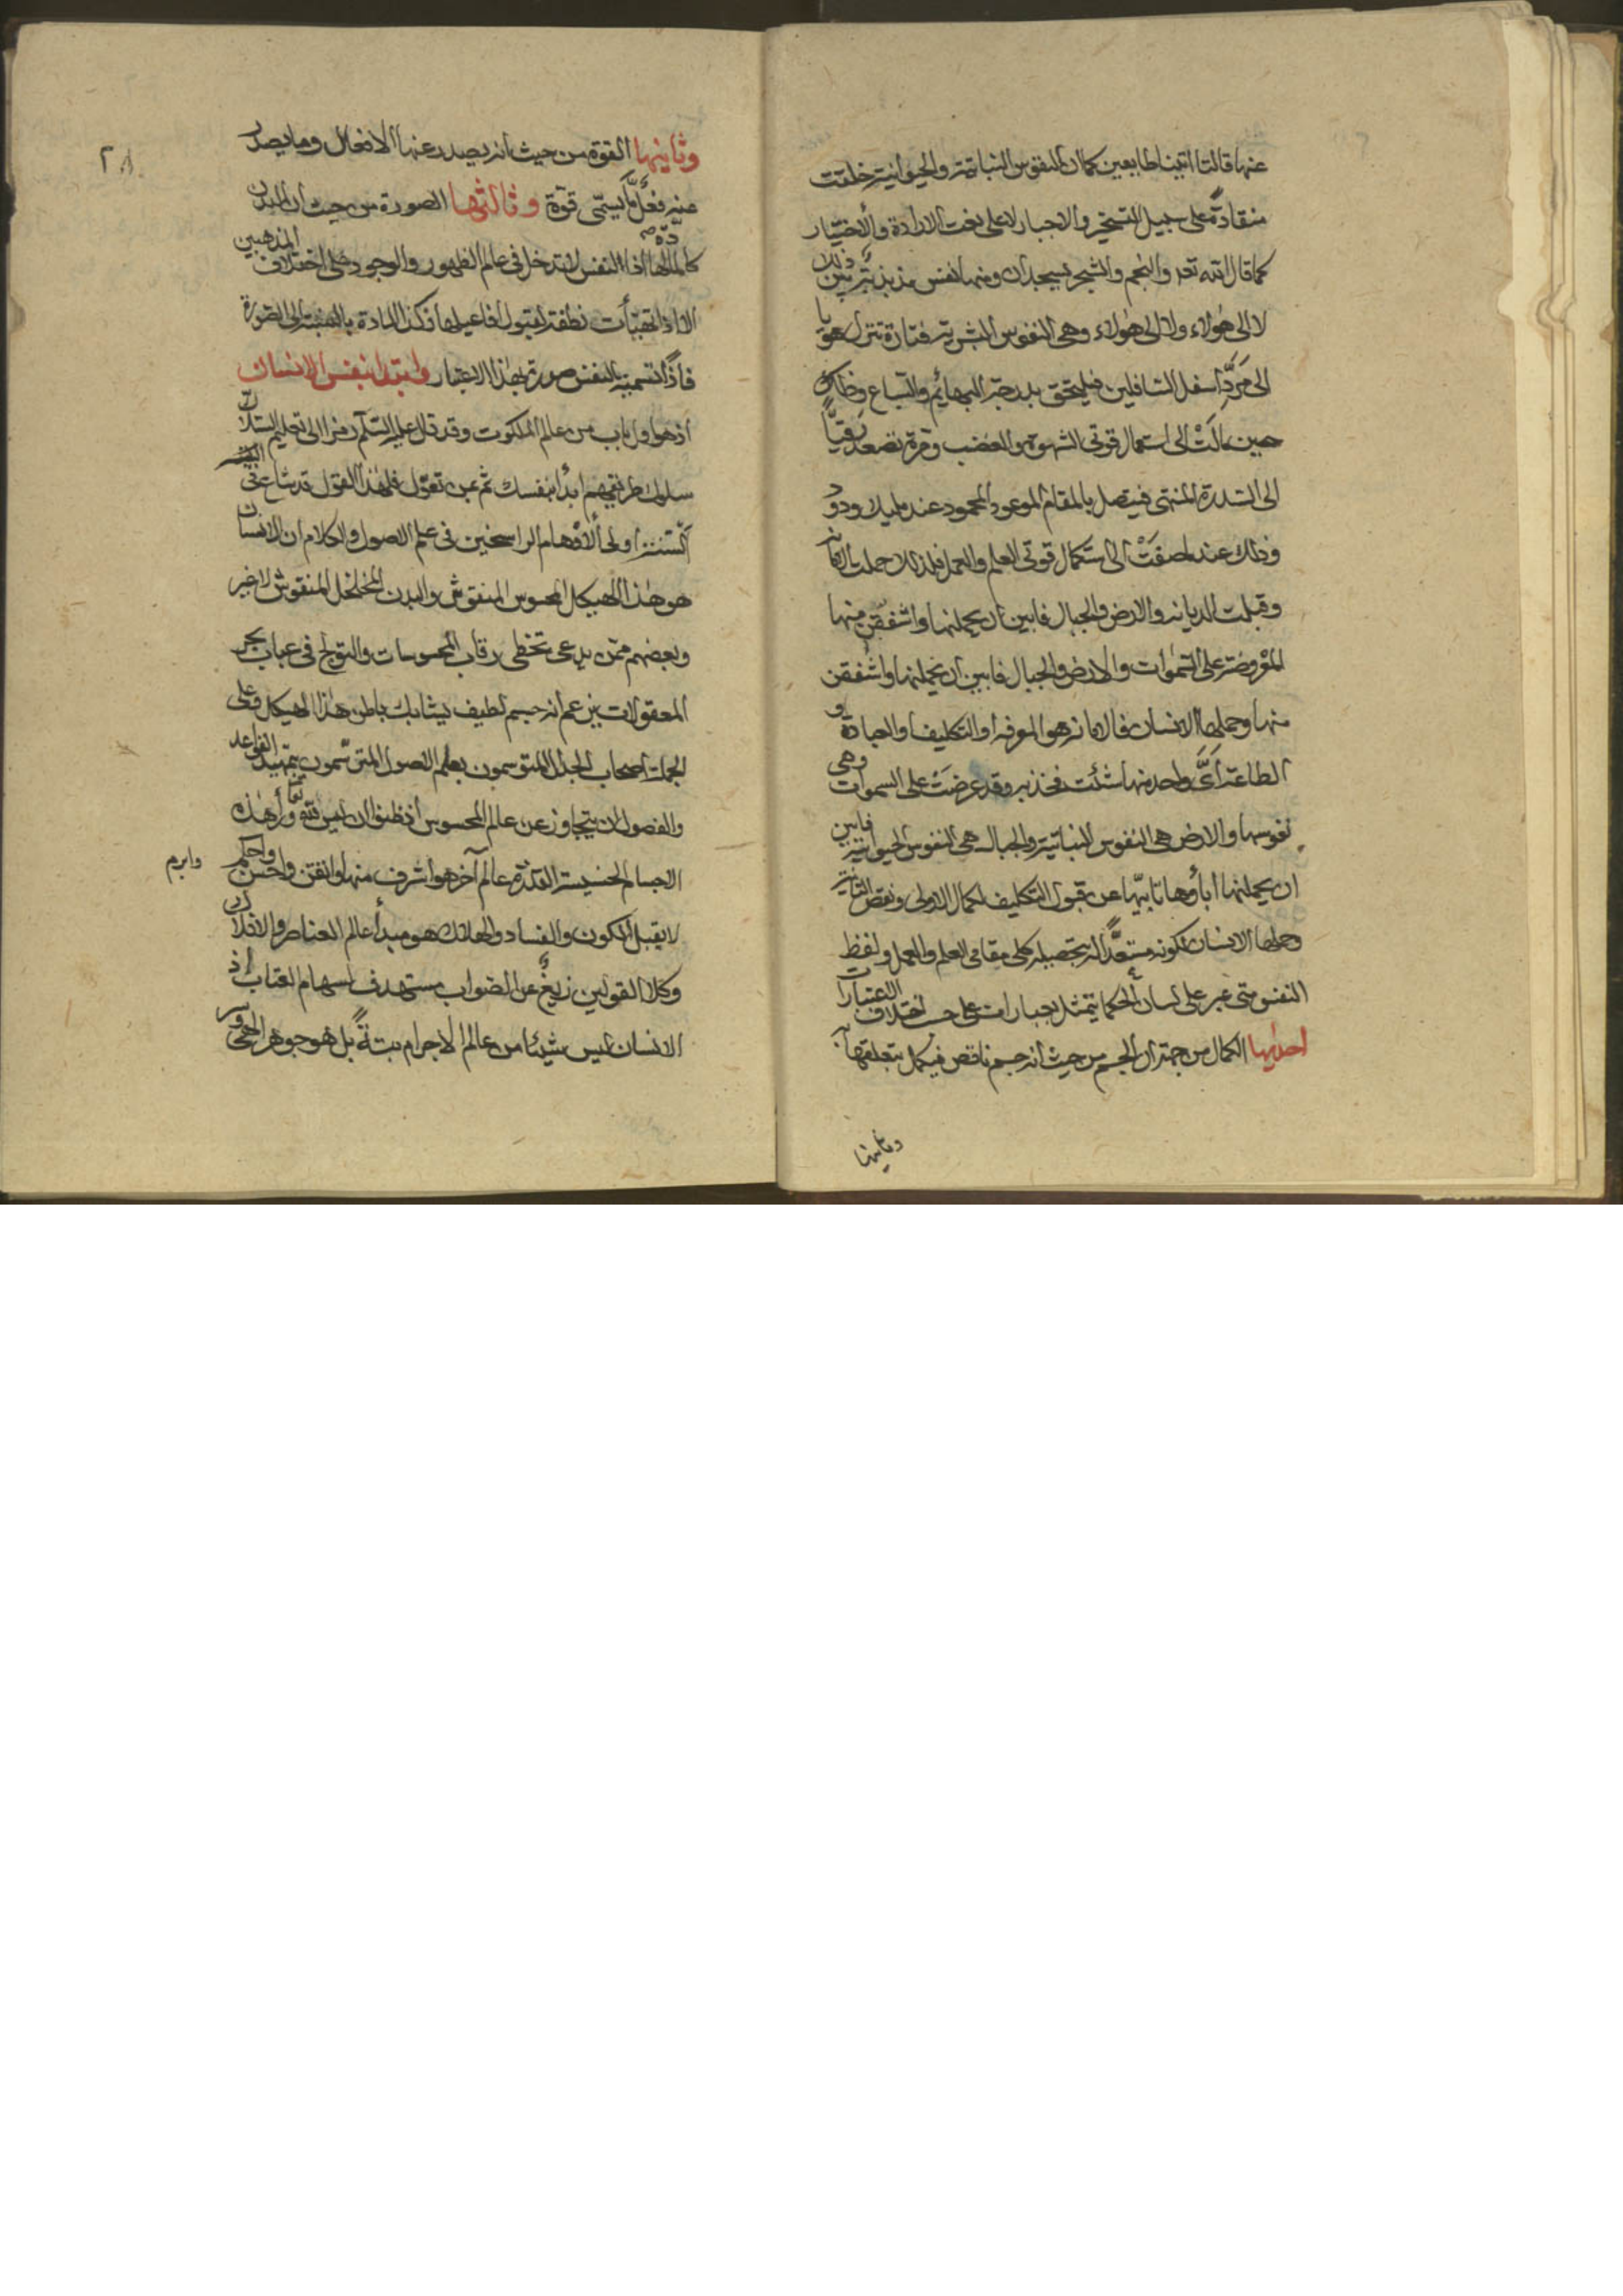 عنها قالتا اتينا طايعين كما ان النفوس النباتية والحيوانية خلقت
منقادة على سبيل التسخير والاجبار لا على نعت الارادة والاختيار
كما قال الله تعه والنجم والشجر يسجدان ومنها نفس مذبذبة بين ذلك
لا الى هؤلاء ولا الى هؤلاء وهى النفوس البشرية فتارة تتنزل هويا
الى مردّ اسفل السافلين فيلتحق بدرجة البهائم والسباع وذلك
حين مالت الى استعمال قوتى الشهوة والغضب ومرة تصعد رقيّاً
الى السدرة المنتهى فيتصل بالمقام الموعود المحمود عند مليك ودود
وذلك عند ما صفت الى استكمال قوتى العلم والعمل فلذلك حملت الامانة
وقبلت الديانة والارض والجبال فابين ان يحملنها واشفقن منها
المعروضة على السموات والارض والجبال فابين ان يحملنها واشفقن
منها وحملها الانسان فالامانة هو المعرفة او التكليف او العبادة و
الطاعة اىّ واحد منها شئت فخذ به وقد عرضت على السموات وهى
نفوسها والارض هى النفوس النباتية والجبال هى النفوس الحيوانية فابين
ان يحملنها اباؤها تابيّها عن قبول التكليف لكمال الاولى ونقص الثانية
وحملها الانسان لكونه مستعدّاً له بتحصيله كلى مقامى العلم والعمل ولفظ
النفس متى عبر على لسان الحكما يتمثل بعبارات على حسب اختلاف الاعتبارات
احديها الكمال من جهة ان الجسم من حيث انه جسم ناقص فيكمل بتعلقها به
وثانيها
٢٨
وثانيها القوة من حيث انه يصدر عنها الافعال وما يصدر
عنه فعل مّا يسمّى قوة وثالثها الصورة من حيث ان البدن
كالمادة لها اذا النفس لا تدخل فى عالم الظهور والوجود على اختلاف المذهبين
الا اذا تهيّأت نطفة لقبول افاعيلها فكذا المادة بالنسبة الى الصورة
فاذاً تسمية النفس صورة بهذا الاعتبار وابتدا بنفس الانسان
اذ هو اول باب من عالم الملكوت وقد قال عليه السّلم رمزا الى تعليم السلاك
سلوك طريقهم ابدأ بنفسك ثم بمن تعوّل فلهذا القول قد شاع فى
السنة اولى الاوهام الراسخين فى علم الاصول والكلام ان الانسان
هو هذا الهيكل المحسوس المنقوش والبدن المخلخل المنقوش لاغير
وبعضهم ممّن يدعى تخطى رقاب المحسوسات والتولج فى عباب بحر
المعقولات يزعم انه جسم لطيف يشابك باطن هذا الهيكل وعلى
الجملة اصحاب الجدل المتوسمون بعلم الاصول المترسّمون بتمهيد القواعد
والفصول لن يتجاوز عن عالم المحسوس اذ ظنوا ان ليس ثمه وراء هذه
الاجسام الخسيسة القذرة عالم آخر هو اشرف منها واتقن واحسن واحكم
وابرم
لا يقبل الكون والفساد والهلاك هو مبدأ عالم العناصر والافلاك
وكلا القولين زيغ عن الصواب مستهدف لسهام العتاب اذ
الانسان ليس شيئا من عالم الاجرام بتة بل هو جوهر